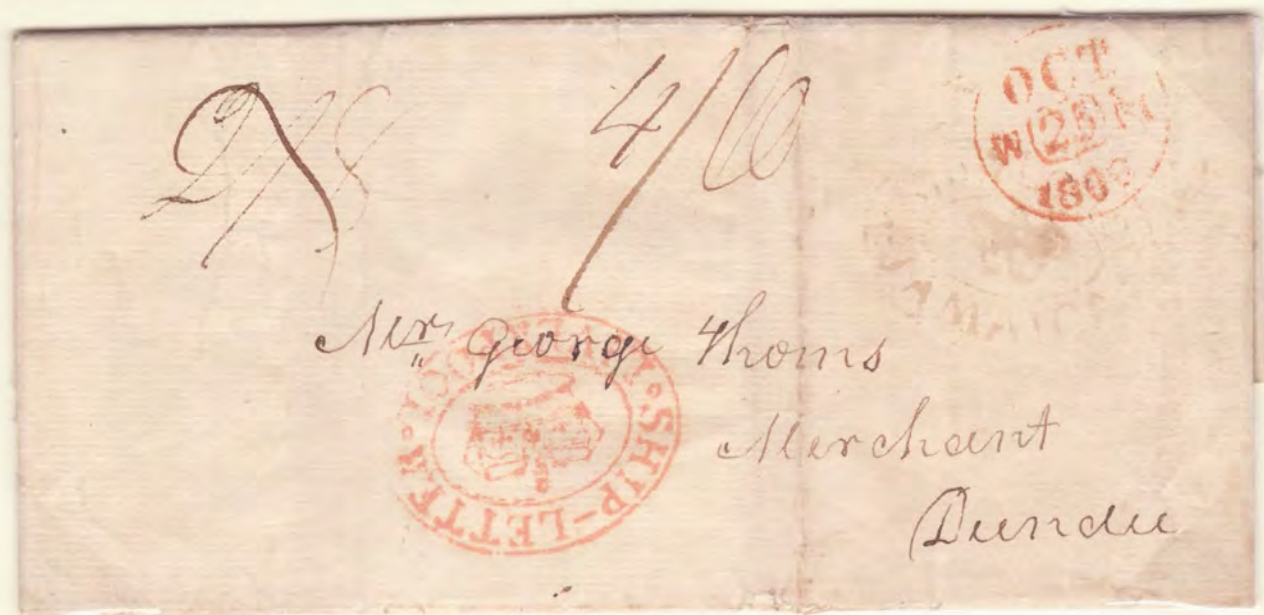 2/8 4/6
OCT
W 25 M
180
Mr. George Thoms
Merchant
Dundee
SHIP-LETTER